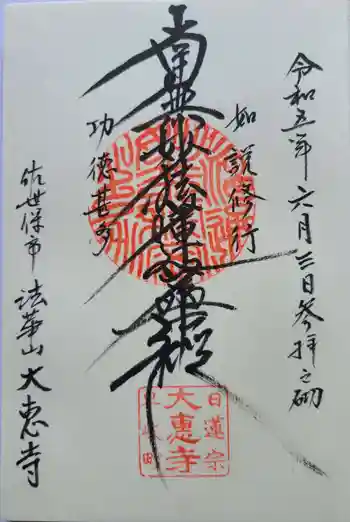 令和五年六月三日参拝之砌
如説修行
南無妙法蓮華経
功徳甚多
佐世保市 法華山 大恵寺
日蓮宗
大恵寺